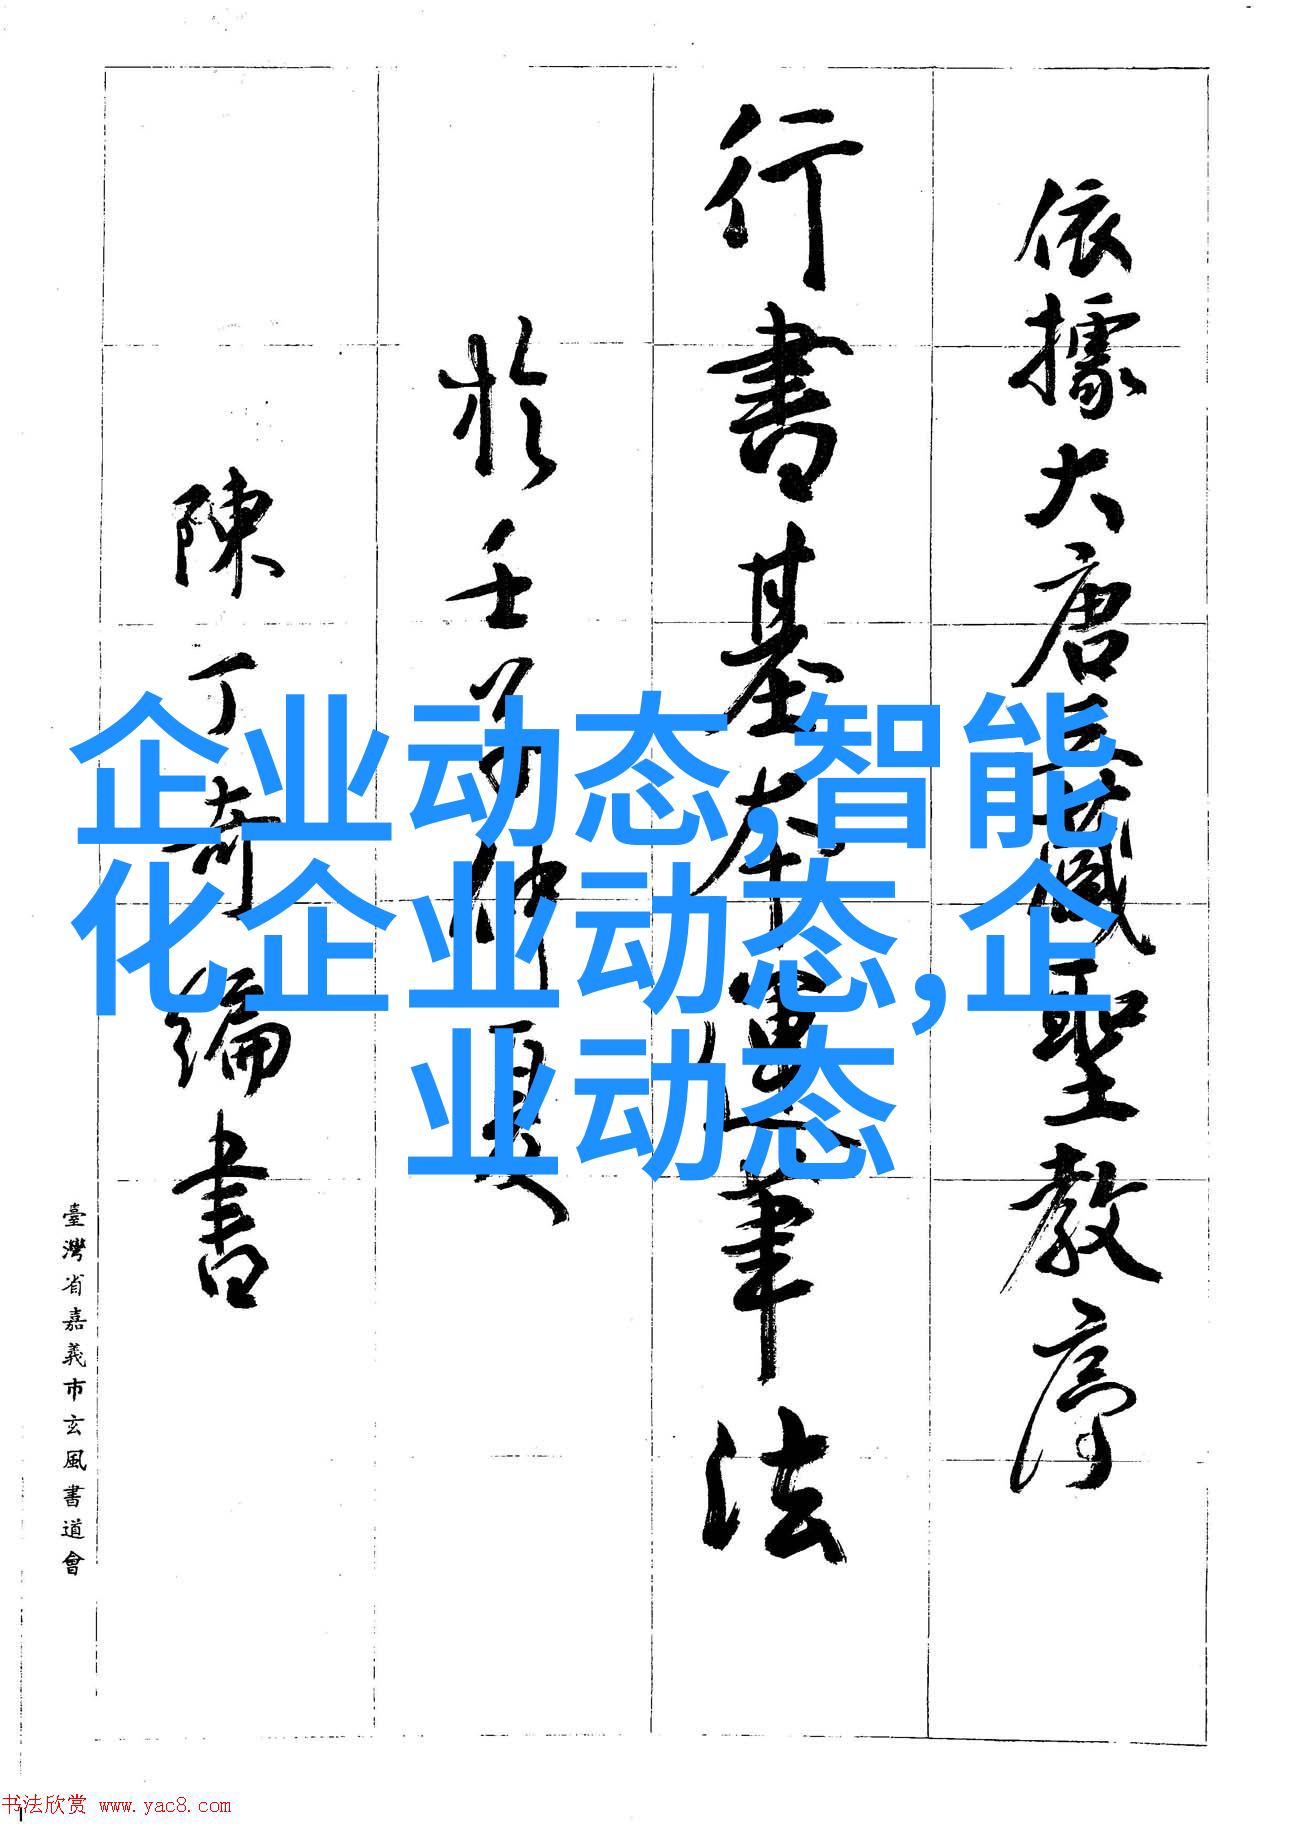 依據大唐三藏聖教序
行書基本運筆法
於壬子仲夏
陳丁奇編書
臺灣省嘉義市玄風書道會
企业动态,智能
化企业动态,企
业动态
书法欣赏 www.yac8.com
1